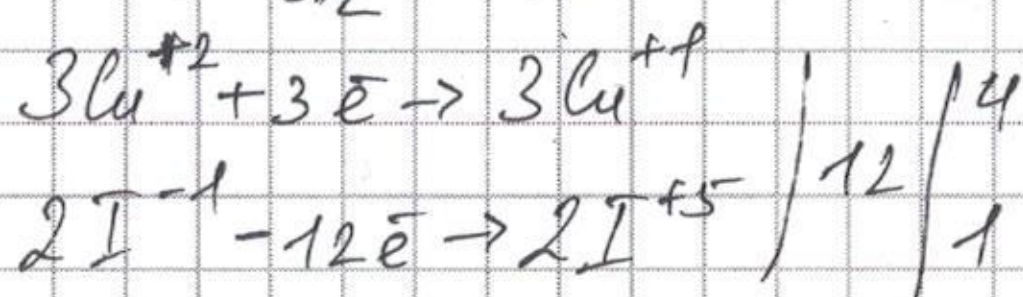 3Cu⁺² + 3ē → 3Cu⁺¹ | 12 | 4
2I⁻¹ - 12ē → 2I⁺⁵ | 1